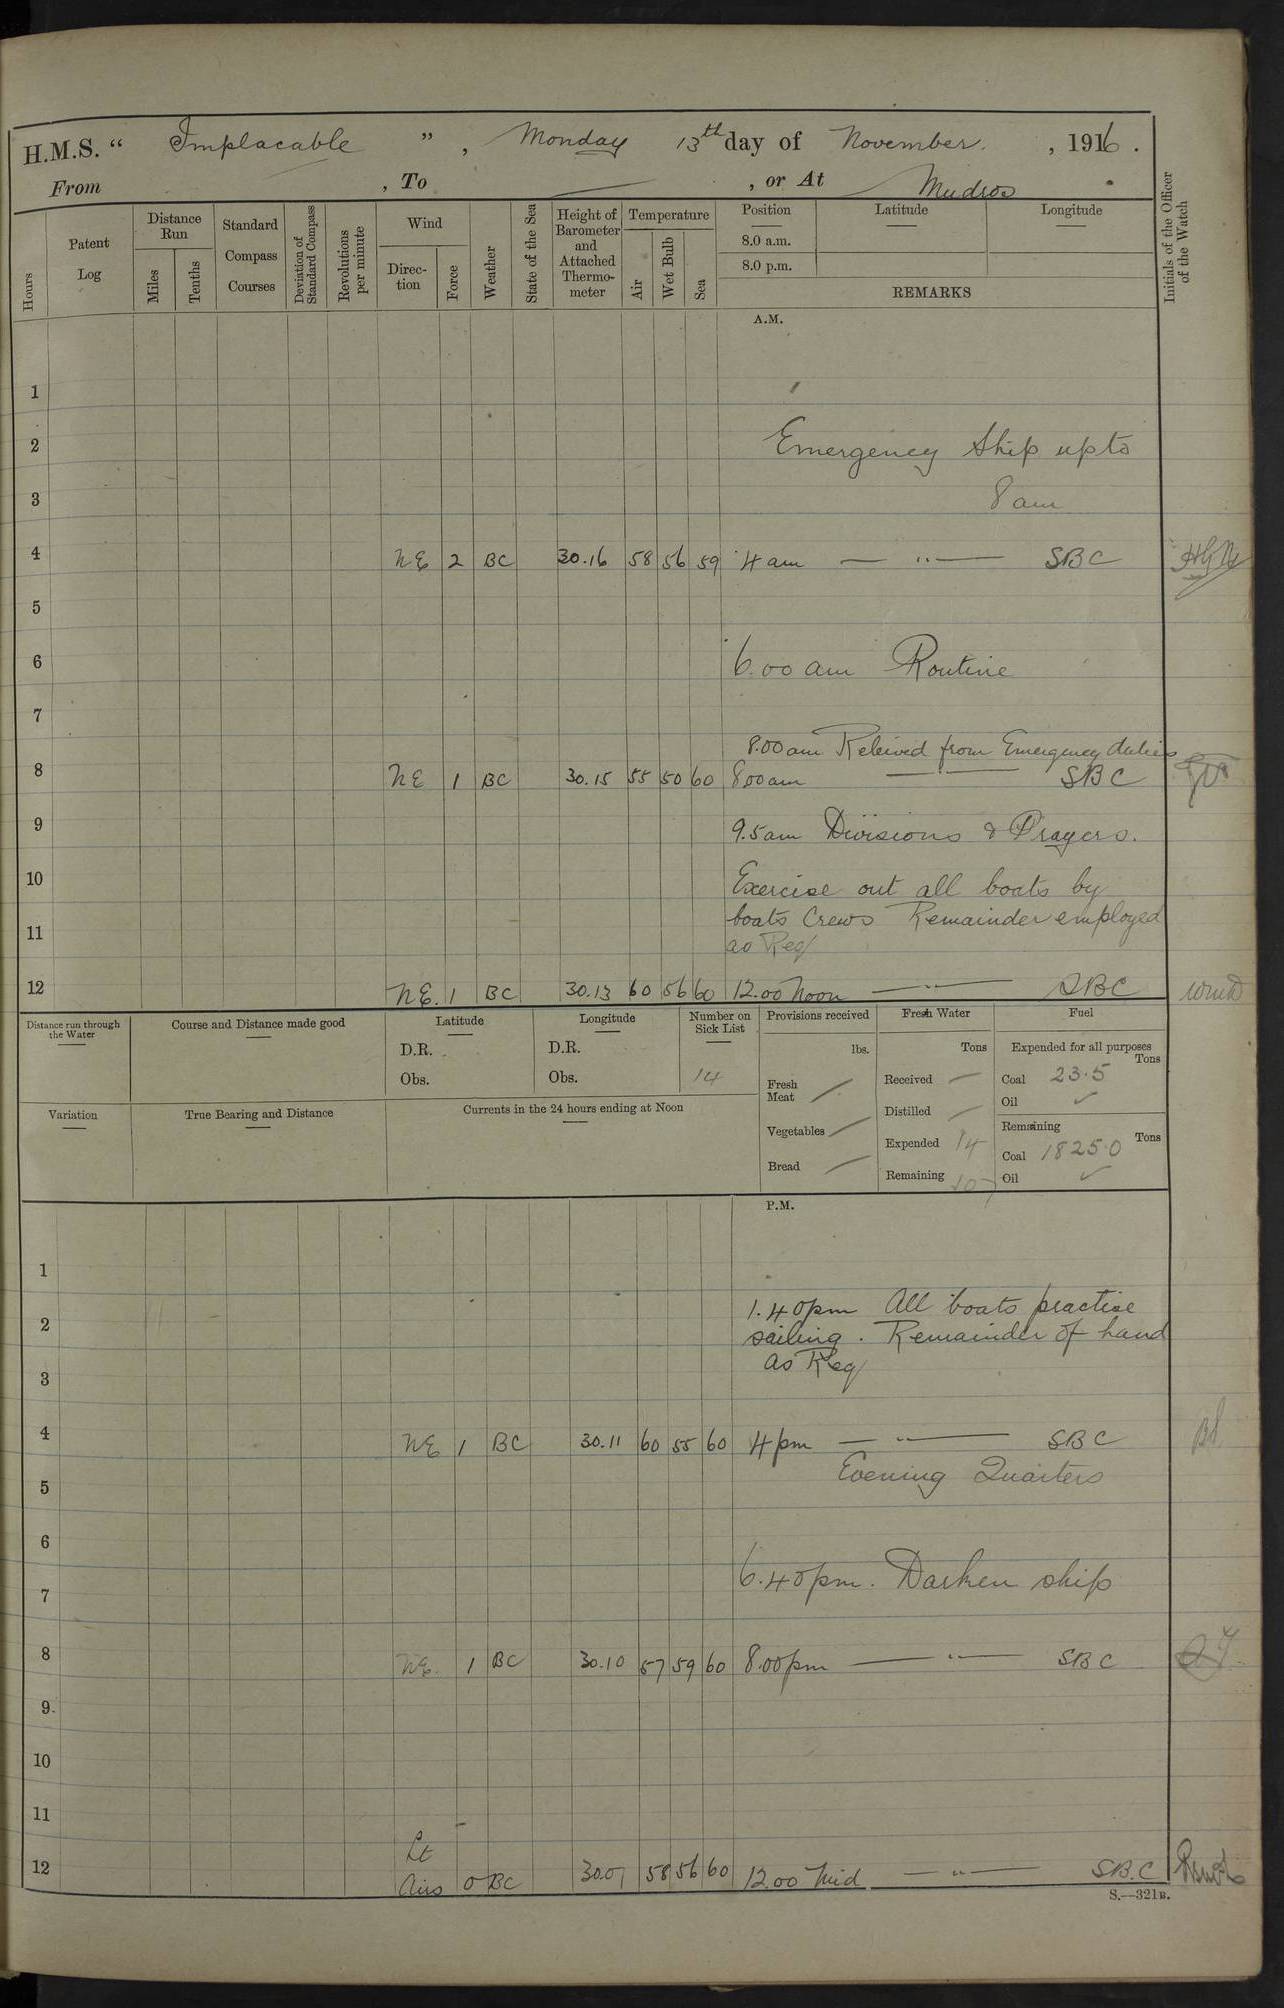 H.M.S. “ Implacable ” , Monday 13th day of November. , 1916 .
From , To , or At Mudros
Hours
Patent Log
Distance Run
Miles
Tenths
Standard Compass Courses
Deviation of Standard Compass
Revolutions per minute
Wind
Direc-tion
Force
Weather
State of the Sea
Height of Barometer and Attached Thermo-meter
Temperature
Air
Wet Bulb
Sea
Position
8.0 a.m.
8.0 p.m.
Latitude
Longitude
REMARKS
Initials of the Officer of the Watch
A.M.
1
2 Emergency Ship up to
3 8 am
4 NE 2 BC 30.16 58 56 59 4 am — " — SBC
5
6 6.00 am Routine
7
8.00am Releived from Emergency duties
8 NE 1 BC 30.15 55 50 60 800am — " — SBC
9 9.5am Divisions & Prayers.
10 Exercise out all boats by
11 boats Crews Remainder employed
as Req
12 NE. 1 BC 30.13 60 56 60 12.00 Noon — " — SBC
Distance run through the Water
Course and Distance made good
Latitude
D.R.
Obs.
Longitude
D.R.
Obs.
Number on Sick List
14
Provisions received
lbs.
Fresh Meat
Vegetables
Bread
Fresh Water
Tons
Received
Distilled
Expended 14
Remaining
Fuel
Expended for all purposes
Tons
Coal 23.5
Oil
Remaining
Tons
Coal 1825.0
Oil
Variation
True Bearing and Distance
Currents in the 24 hours ending at Noon
P.M.
1
1.40pm All boats practise
2 sailing . Remainder of hand
3 as Req
4 NE 1 BC 30.11 60 55 60 4pm — " — SBC
5 Evening Quarters
6
7 6.40pm. Darken ship
8 NE. 1 BC 30.10 57 59 60 8.00pm — " — SBC
9
10
11
Lt
12 Airs 0 BC 58 56 60 12.00 Mid — " — SB.C
S.—321B.